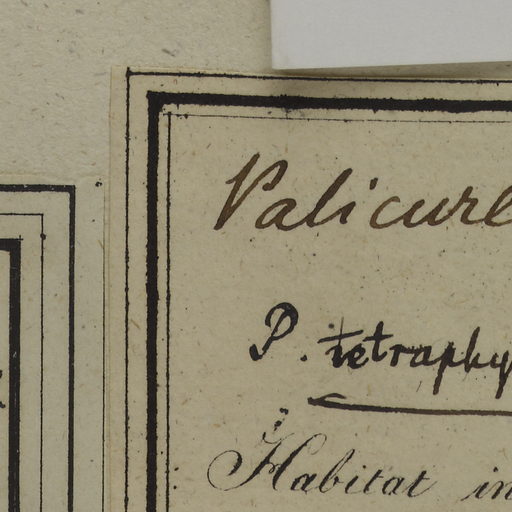 Valicure
P. tetraphy
Habitat in